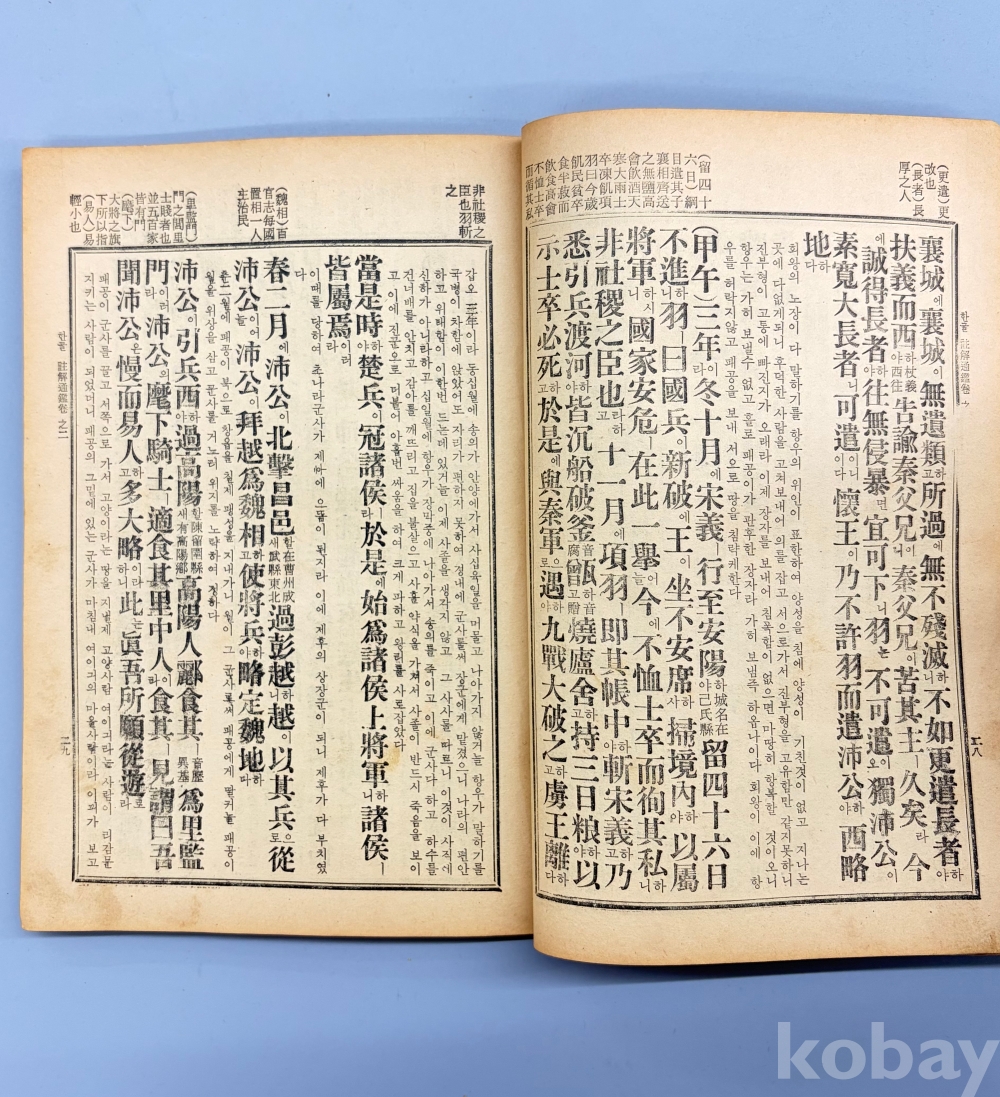 (更遣)更
改也
(長者)長
厚之人
襄城에襄城이無遺類하고所過에無不殘滅하니不如更遣長者하야
扶義而西하야杖義西往告諭秦父兄이니秦父兄이苦其主ㅣ久矣라今
에誠得長者하야往無侵暴면宜可下니羽는不可遣이오獨沛公이
素寬大長者니可遣이니다懷王이乃不許羽而遣沛公하야西略
地하다
회왕의 노장이 다 말하기를 항우의 위인이 표한하여 양성을 침에 양성이 기친것이 없고 지나는
곳에 다없게되니 후덕한 사람을 고쳐보내어 의를 잡고 서으로가서 진부형을 고유함만 같지못하니
진부형이 고통에 빠진지가 오래라 이제 장자를 보내어 침폭함이 없으면 마땅히 항복할 것이오니
항우는 가히 보낼수 없고 홀로 패공이 관후한 장자라 가히 보냄즉 하나이다 회왕이 이에 항
우를 허락지않고 패공을 보내 서으로 땅을 침략케한다
(留四十
六日)綱
目遣其子
襄相齊送
之無鹽高
會飮酒天
寒大雨士
卒凍飢項
羽曰今歲
飢民貧卒
食半菽而
飮食高會
不恤士卒
而徇其私
(甲午)三年이라冬十月에宋義ㅣ行至安陽하야城名在己氏縣留四十六日
不進하니羽ㅣ曰國兵이新破에王이坐不安席하사掃境內하야以屬
將軍하시니國家安危ㅣ在此一擧어늘今에不恤士卒而徇其私하니
非社稷之臣也라하고十一月에項羽ㅣ卽其帳中하야斬宋義하고乃
悉引兵渡河하야皆沉船破釜音腐甑하며音贈燒廬舍하고持三日粮하야以
示士卒必死하고於是에與秦軍으로遇하야九戰大破之하고虜王離하다
한글 註解通鑑卷
二八
非社稷之
臣也羽斬
之
갑오 三年이라 동십월에 송의가 안양에가서 사십륙일을 머물고 나아가지 않거늘 항우가 말하기를
국병이 차함에 앉았어도 자리가 편하지 못하여 경내에 군사들써 장군에게 맡겼으니 나라의 편안
하고 위태함이 이한번 드는데 있거늘 이제 사졸을 생각지 않고 그 사사를 따르니 이것이 사직에
신하가 아니라하고 십일월에 항우가 장막중에 나아가서 송의를 죽이고 이에 군사다 하고 하수를
건너배를 안치고 감아를 깨뜨리고 집을 불살으고 사흘 약식을 가져서 사졸이 반드시 죽음을 보이
고 이에 진군으로 더불어 아홉번 싸움을 하여 크게 파하고 왕리를 사로잡았다
當是時하야楚兵이冠諸侯ㅣ라於是에始爲諸侯上將軍하니諸侯ㅣ
皆屬焉이러라
이때를 당하여 초나라군사가 제후에 으뜸이 된지라 이에 제후의 상장군이 되니 제후가 다 부치었
다
(魏相)百
官志每國
置相一人
主治民
春二月에沛公이北擊昌邑할새在曹州咸武縣東北過彭越하니越이以其兵으로從
沛公이어늘沛公이拜越爲魏相하고使將兵하야略定魏地하다
춘二월에 패공이 북으로 창읍을 칠제 팽성을 지내가니 월이 그 군사로써 패공에게 딸커늘 패공이
월을 위상을 삼고 군사를 거느려 위지를 노략하여 정하다
(里監門)
門之閭里
士賤者也
並五百家
皆有門
(麾下)
大將之旗
下所以指
(易人)易
輕小也
沛公이引兵西하야過高陽할새陳留圉縣有高陽鄕高陽人酈食其ㅣ音歷異基爲里監
門이러니沛公의麾下騎士ㅣ適食其里中人이라食其ㅣ見謂曰吾
聞沛公은慢而易人하고多大略이라하니此는眞吾所願從遊로라
패공이 군사를 끌고 서쪽으로 가서 고양이라는 땅을 지낼제 고양사람 여이기라는 사람이 리감문
지키는 사람이 되었더니 패공의 그밑에 있는 군사가 마침내 여이기의 마을사람이라 이피가 보고
한글 註解通鑑卷 之二
二九
kobay